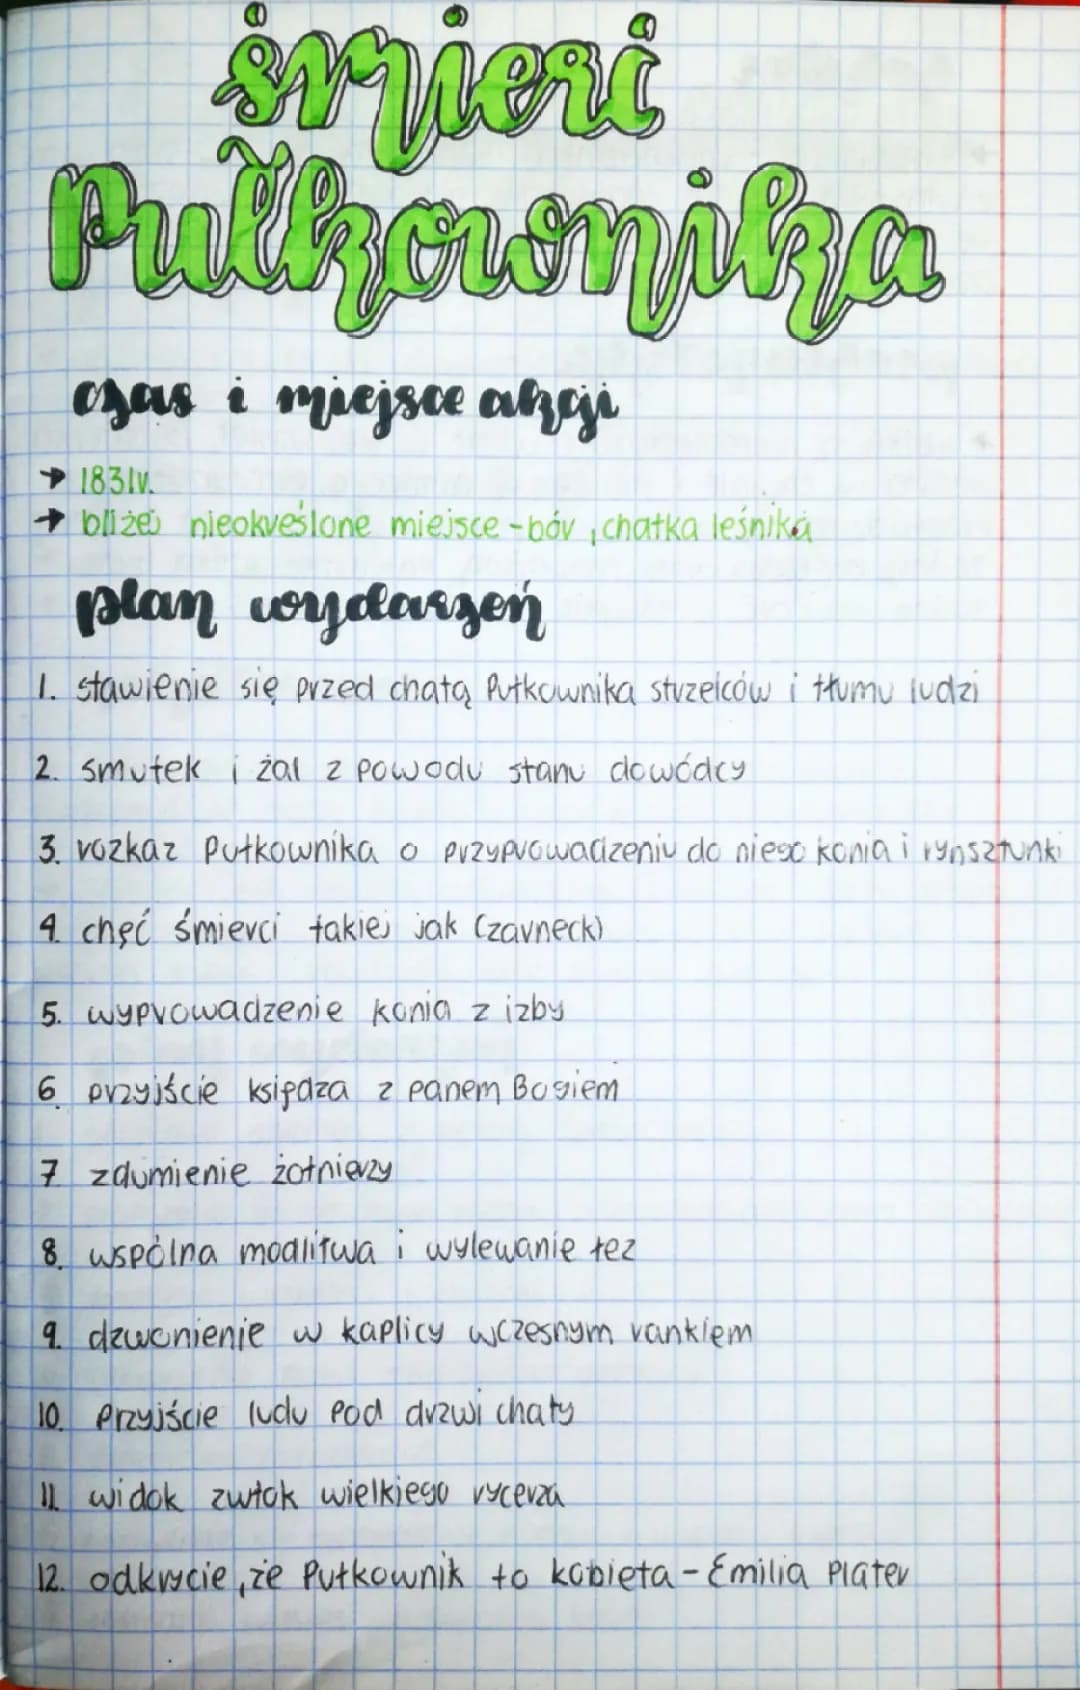 śmierć
Pułkownika
czas i miejsce akcji
→ 1831r.
→ bliżej nieokreślone miejsce - bór, chatka leśnika
plan wydarzeń
1. stawienie się przed chatą Pułkownika strzelców i tłumu ludzi
2. smutek i żal z powodu stanu dowódcy
3. rozkaz Pułkownika o przyprowadzeniu do niego konia i rynsztunki
4. chęć śmierci takiej jak Czarneck)
5. wyprowadzenie konia z izby
6. przyjście księdza z panem Bogiem
7 zdumienie żołnierzy
8. wspólna modlitwa i wylewanie łez
9. dzwonienie w kaplicy wczesnym rankiem
10. Przyjście ludu pod drzwi chaty
11. widok zwłok wielkiego rycerza
12. odkrycie, że Pułkownik to kobieta - Emilia Plater